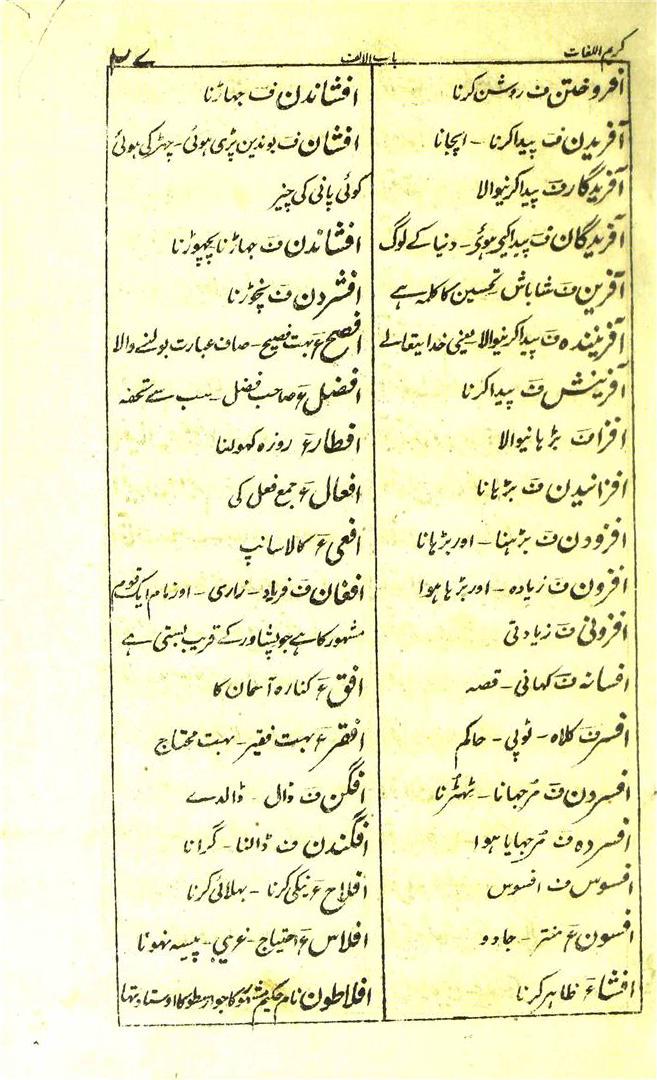 کریم اللغات
باب الالف
۲۷
افروختن ف روشن کرنا
آفریدن ف پیدا کرنا - اپجانا
آفریدگار ف پیدا کرنیوالا
آفریدگان ف پیدا کیی ہوئی - دنیا کے لوگ
آفرین ف شاباش تحسین کا کلمہ ہے
آفریننده ف پیدا کرنیوالا یعنی خدایتعالے
آفرینش ف پیدا کرنا
افزا ف بڑہانیوالا
افزائیدن ف بڑہانا
افزودن ف بڑہنا - اور بڑہانا
افزون ف زیادہ - اور بڑہا ہوا
افزونی ف زیادتی
افسانہ ف کہانی - قصہ
افسر ف کلاہ - ٹوپی - حاکم
افسردن ف مرجہانا - ٹھٹرنا
افسردہ ف مرجہایا ہوا
افسوس ف افسوس
افسون ع منتر - جادو
افشاء ع ظاہر کرنا
افشاندن ف جہاڑنا
افشان ف بوندین پڑی ہوئی - چہڑکی ہوئی
کوئی پانی کی چیز
افشاندن ف جہاڑنا پچہوڑنا
افشردن ف نچوڑنا
افصح ع بہت فصیح - صاف عبارت بولنے والا
افضل ع صاحب فضل - سب سے تحفہ
افطار ع روزہ کہولنا
افعال ع جمع فعل کی
افعی ع کالا سانپ
افغان ف فریاد - زاری - اور نام ایک قوم
مشہور کا ہے جو پشاور کے قریب بستی ہے
افق ع کنارہ آسمان کا
افقر ع بہت فقیر - بہت محتاج
افگن ف ڈال - ڈالدے
افگندن ف ڈالنا - گرانا
افلاح ع نیکی کرنا - بہلائی کرنا
افلاس ع احتیاج - غریبی - پیسہ نہونا
افلاطون نام حکیم مشہور کا جو ارسطو کا اوستاد تہا